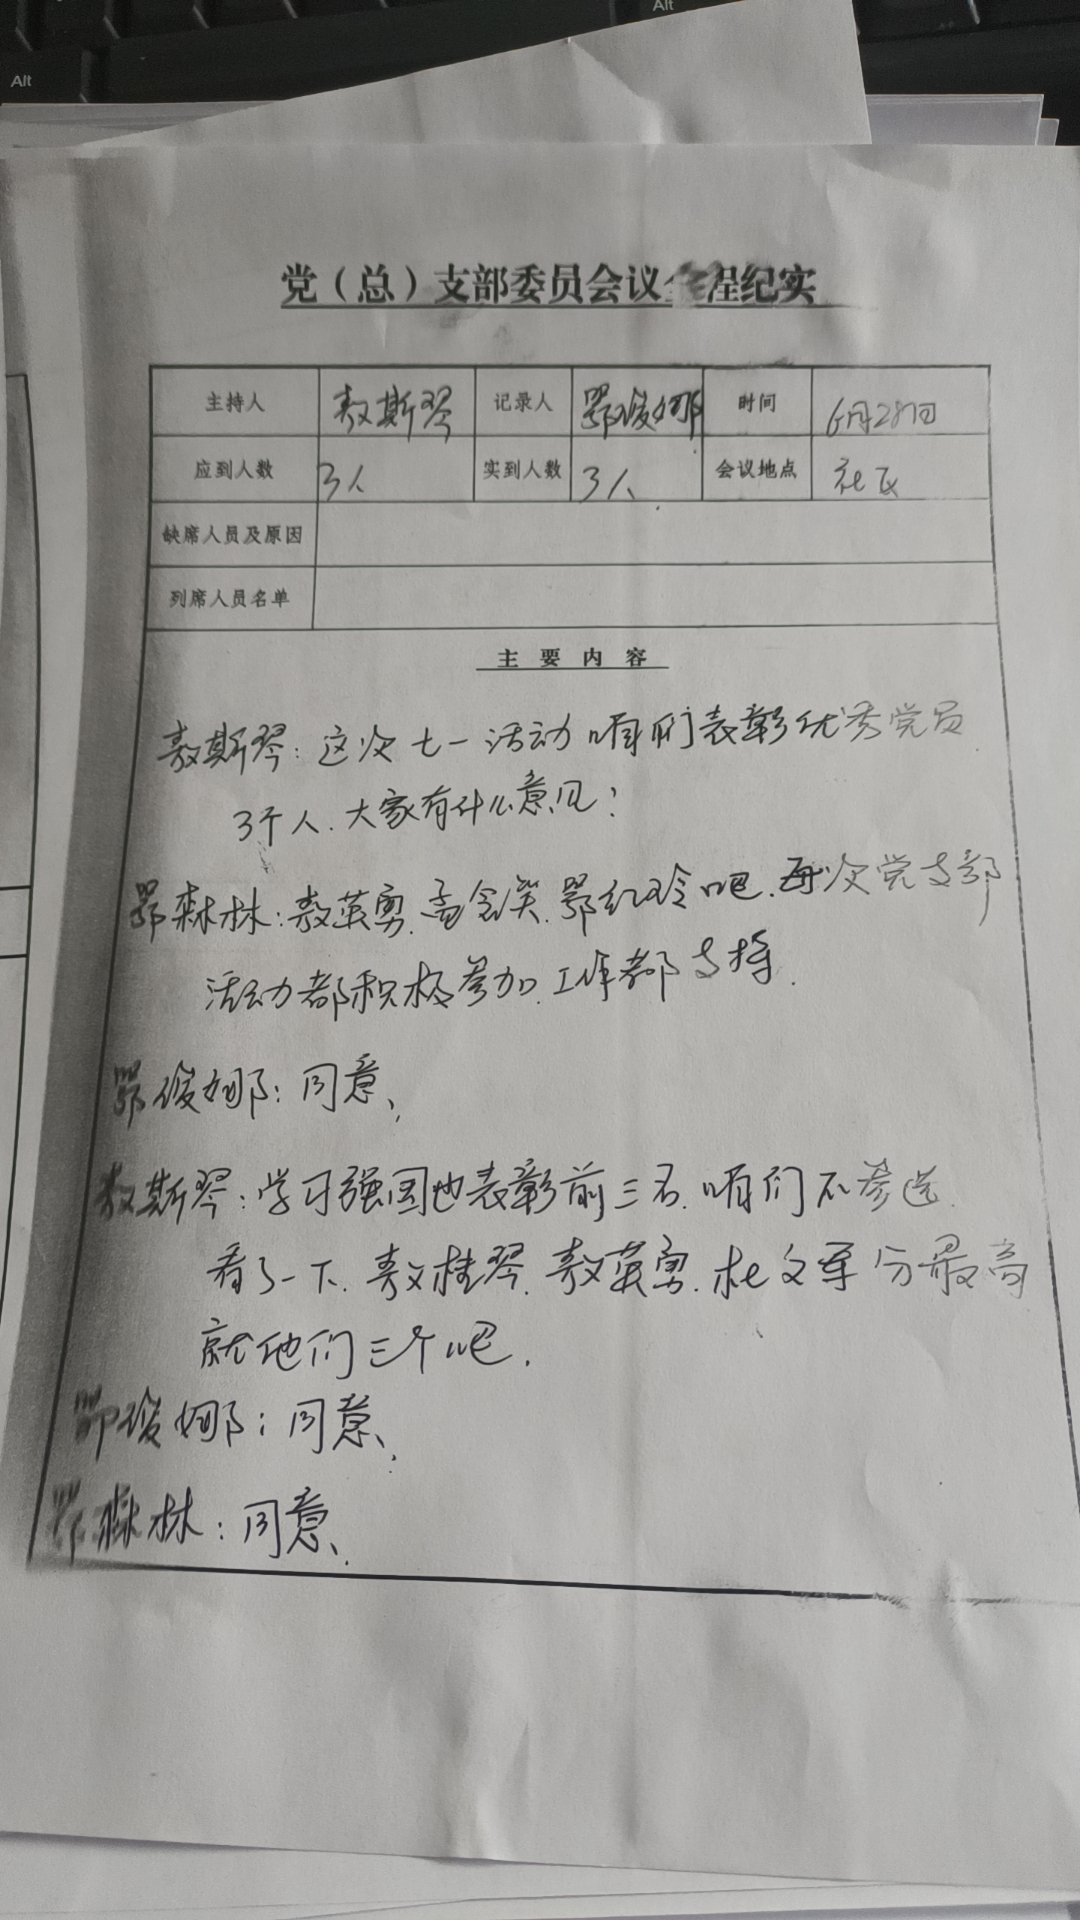 Alt
Alt
党（总）支部委员会议全程纪实
主持人 敖斯琴 记录人 鄂俊娜 时间 6月28日
应到人数 3人 实到人数 3人 会议地点 社区
缺席人员及原因
列席人员名单
主要内容
敖斯琴：这次七一活动咱们表彰优秀党员
3个人.大家有什么意见？
鄂森林：敖英勇.孟金英.鄂红玲吧.每次党支部
活动都积极参加.工作都支持.
鄂俊娜：同意、
敖斯琴：学习强国也表彰前三名.咱们不参选.
看了一下.敖桂琴.敖英勇.杜文军分最高
就他们三个吧.
鄂俊娜：同意、
鄂森林：同意、